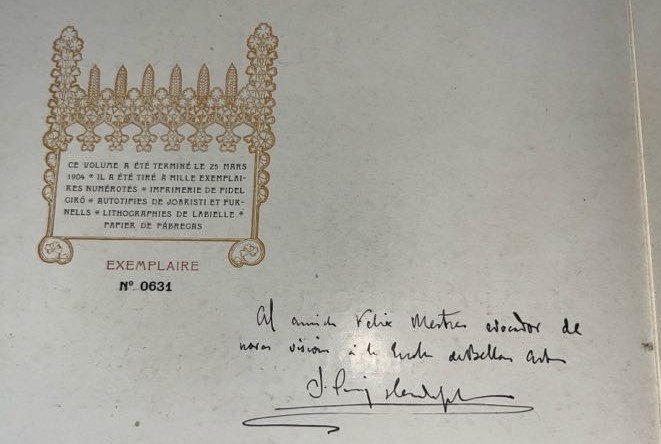 CE VOLUME A ÉTÉ TERMINÉ LE 25 MARS
1904 * IL A ÉTÉ TIRÉ À MILLE EXEMPLAI-
RES NUMÉROTÉS * IMPRIMERIE DE FIDEL
GIRÓ * AUTOTIPIES DE JOARISTI ET FUR-
NELLS * LITHOGRAPHIES DE LABIELLE *
PAPIER DE FÁBREGAS
EXEMPLAIRE
Nº 0631
Al amich Felix Mestres evocador de
novas visions á la Escola de Bellas Arts
J. Puig